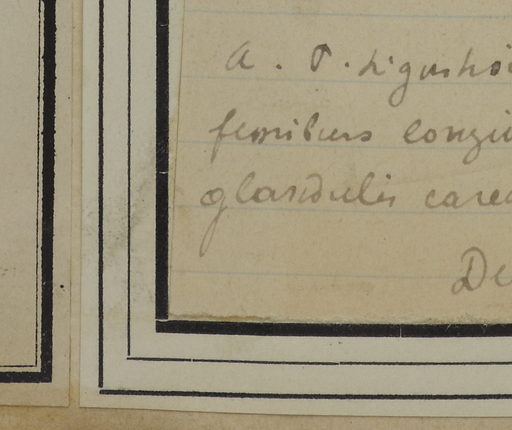 a. P. Ligustri
femibus longi
glandulis care
De